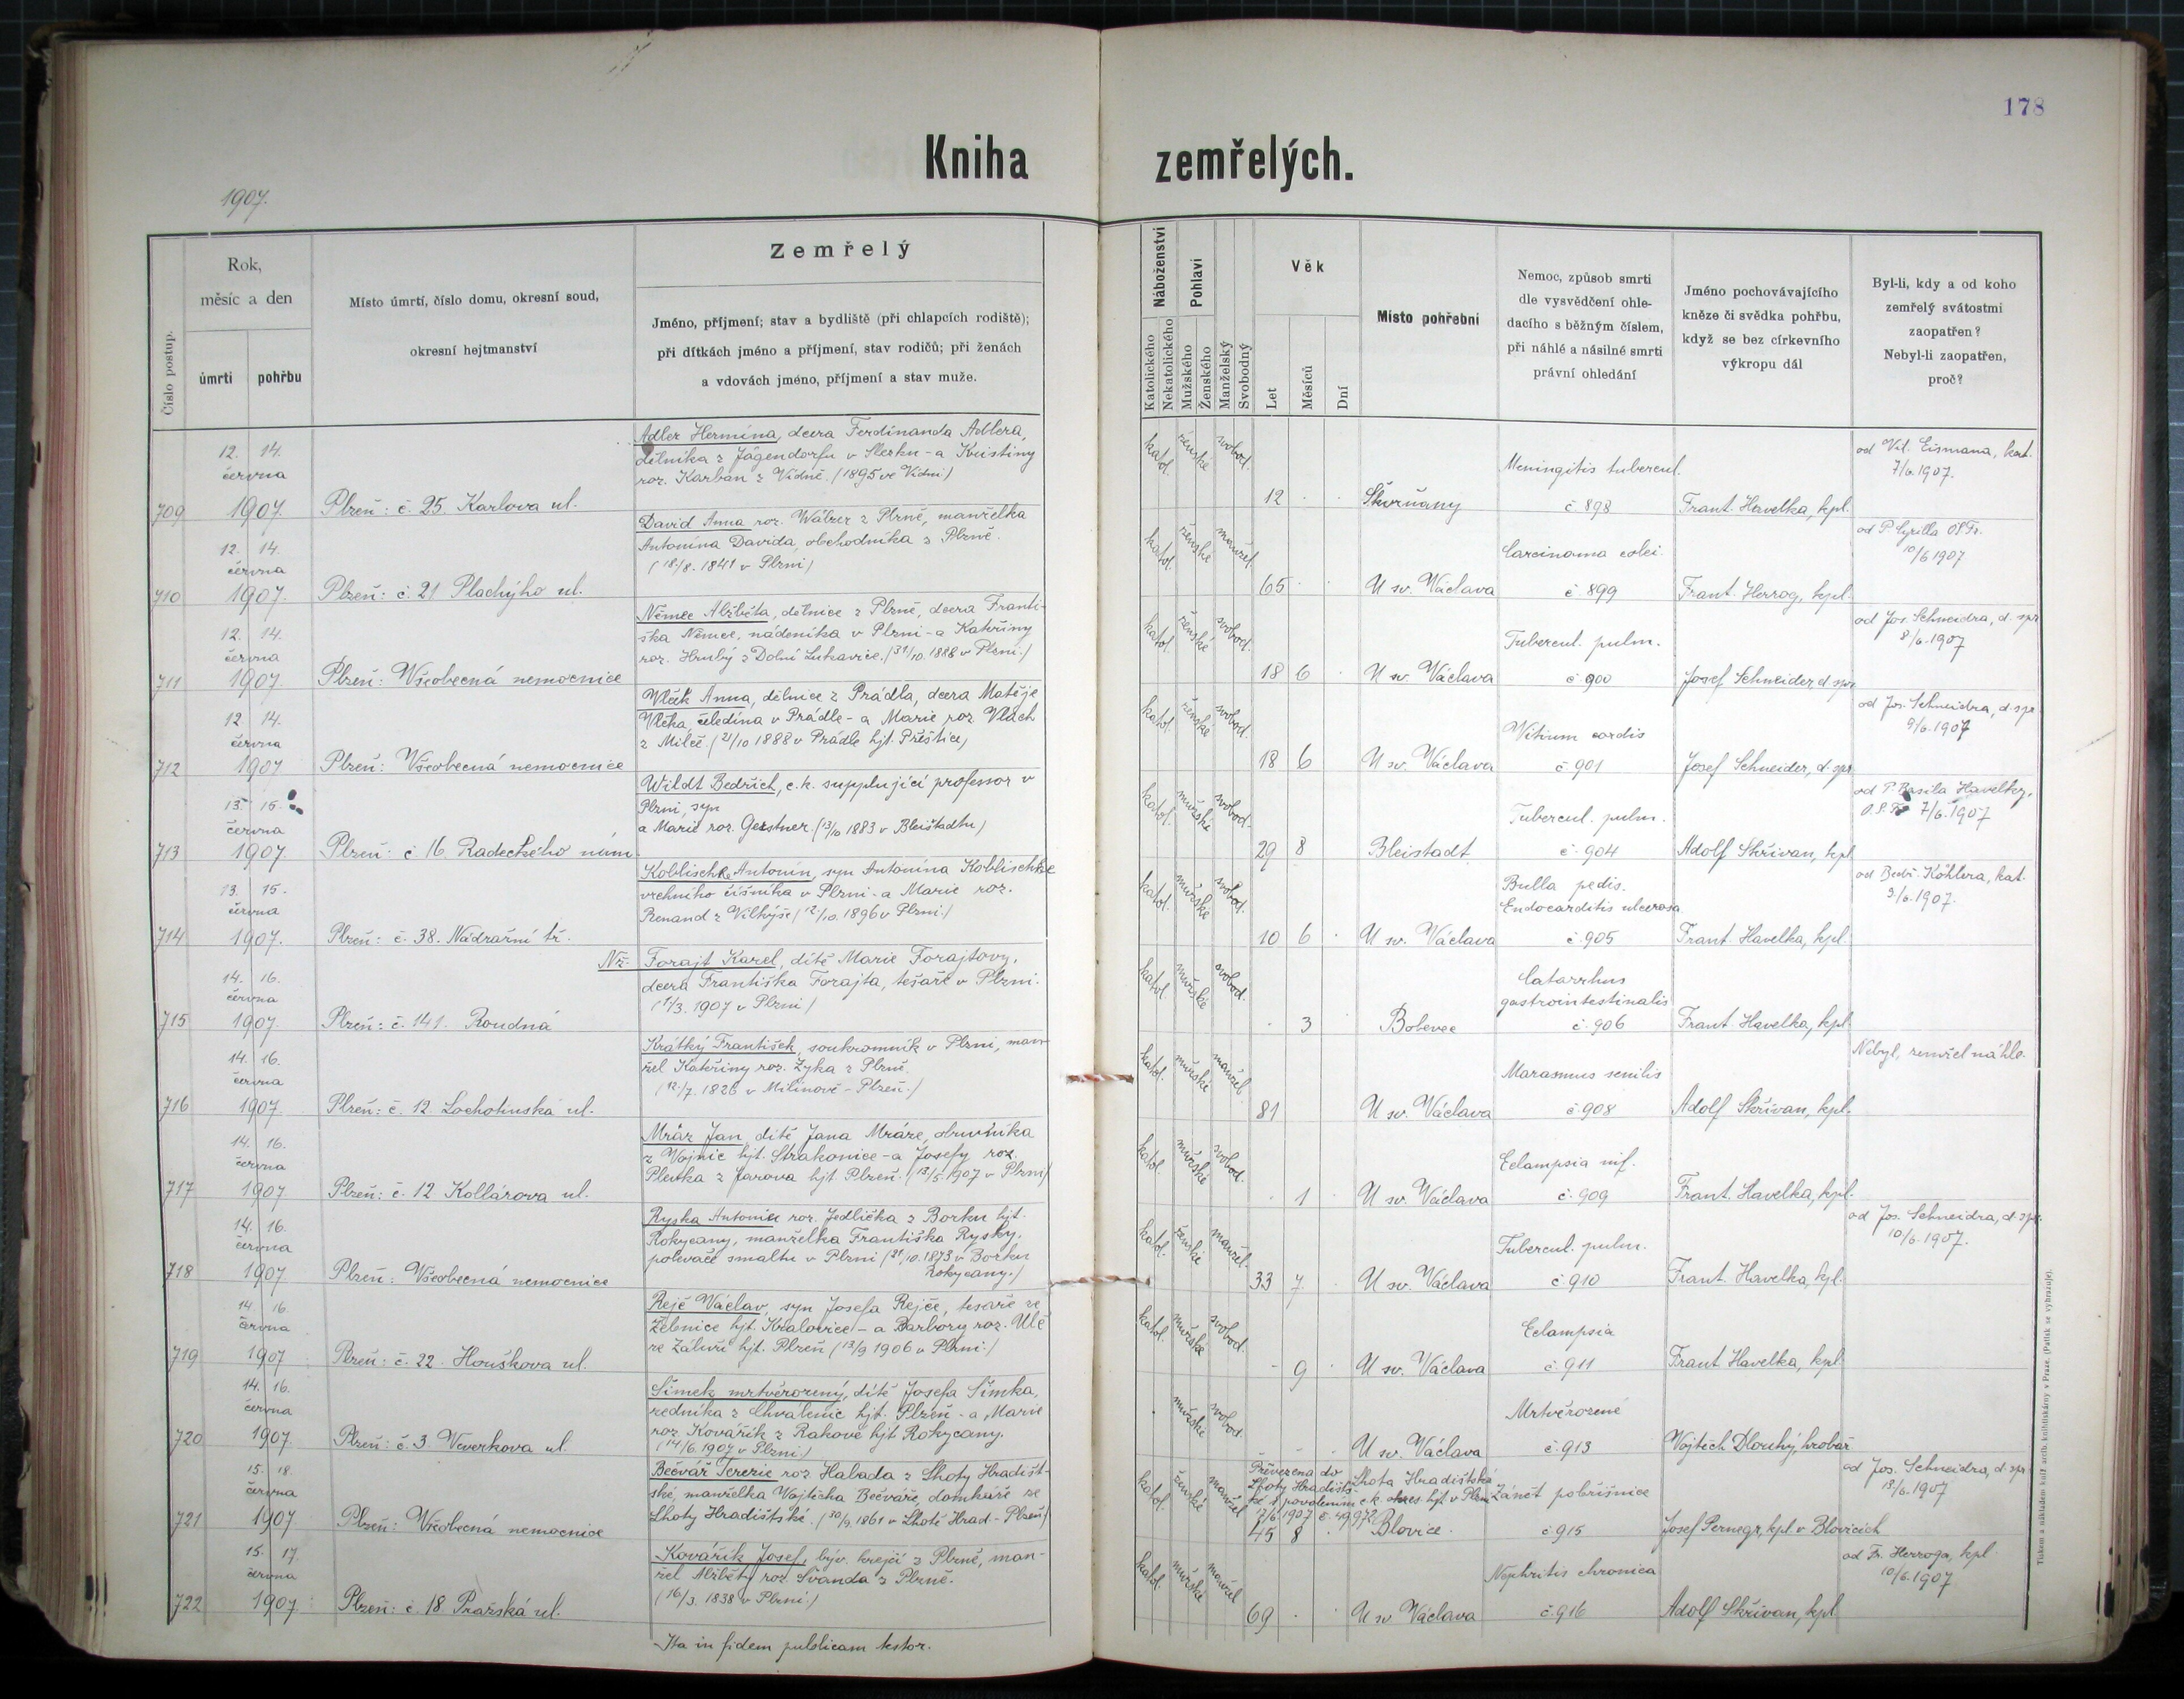 178
Kniha zemřelých.
1907.
Číslo postup.
Rok,
měsíc a den
úmrtí
pohřbu
Místo úmrtí, číslo domu, okresní soud,
okresní hejtmanství
Zemřelý
Jméno, příjmení; stav a bydliště (při chlapcích rodiště);
při dítkách jméno a příjmení, stav rodičů; při ženách
a vdovách jméno, příjmení a stav muže.
Náboženství
Katolického
Nekatolického
Pohlaví
Mužského
Ženského
Manželský
Svobodný
Věk
Let
Měsíců
Dní
Místo pohřební
Nemoc, způsob smrti
dle vysvědčení ohle-
dacího s běžným číslem,
při náhlé a násilné smrti
právní ohledání
Jméno pochovávajícího
kněze či svědka pohřbu,
když se bez církevního
výkropu dál
Byl-li, kdy a od koho
zemřelý svátostmi
zaopatřen?
Nebyl-li zaopatřen,
proč?
709
12. 14.
června
1907.
Plzeň: č. 25. Karlova ul.
Adler Hermína, dcera Ferdinanda Adlera,
dělníka z Jägendorfu v Slezku - a Kristiny
roz. Karban z Vídně. (1895 ve Vídni)
katol. ženské svobod.
12 Skvrňany
Meningitis tubercul.
č. 898
Frant. Havelka, kpl.
od Vil. Eismana, kat.
7/6. 1907.
710
12. 14.
června
1907.
Plzeň: č. 21 Plachýho ul.
David Anna roz. Wálzer z Plzně, manželka
Antonína Davida, obchodníka z Plzně.
(18/8. 1841 v Plzni)
katol. ženské manžel.
65 U sv. Václava
Carcinoma colei.
č. 899
Frant. Herzog, kpl.
od P. Cyrilla OSFr.
10/6 1907
711
12. 14.
června
1907.
Plzeň: Všeobecná nemocnice
Němec Alžběta, dělnice z Plzně, dcera Franti-
ška Němce, nádeníka v Plzni - a Kateřiny
roz. Hrubý z Dolní Lukavice. (31/10. 1888 v Plzni.)
katol. ženské svobod.
18 6 U sv. Václava
Tubercul. pulm.
č. 900
Josef Schneider, d. spr.
od Jos. Schneidra, d. spr.
8/6. 1907
712
12. 14.
června
1907
Plzeň: Všeobecná nemocnice
Vlček Anna, dělnice z Prádla, dcera Matěje
Vlčka, čeledína v Prádle - a Marie roz. Vlach
z Milče. (21/10 1888 v Prádle hjt. Přeštice)
katol. ženské svobod.
18 6 U sv. Václava
Vitium cordis
č. 901
Josef Schneider, d. spr.
od Jos. Schneidra, d. spr.
9/6. 1907
713
13. 15.
června
1907
Plzeň: č 16. Radeckého nám.
Wildt Bedřich, c. k. supplující professor v
Plzni, syn
a Marie roz. Gerstner. (13/10 1883 v Bleištadtu)
katol. mužské svobod.
29 8 Bleistadt
Tubercul. pulm.
č. 904
Adolf Skřivan, kpl
od P. Basila Havelky,
O.S.Fr. 7/6. 1907
714
13. 15.
června
1907.
Plzeň: č. 38. Nádražní tř.
Koblischke Antonín, syn Antonína Koblischkee
vrchního číšníka v Plzni - a Marie roz.
Renand z Vilkýše (12/10. 1896 v Plzni.)
katol. mužské svobod.
10 6 U sv. Václava
Bulla pedis.
Endocarditis ulcerosa
č. 905
Frant. Havelka, kpl.
od Bedř. Köhlera, kat.
9/6. 1907.
715
14. 16.
června
1907
Plzeň: č. 141. Roudná
Nž. Forajt Karel, dítě Marie Forajtovy,
dcera Františka Forajta, tesaře v Plzni.
(1/3. 1907 v Plzni)
katol. mužské svobod.
3 Bolevec
Catarrhus
gastrointestinalis
č. 906
Frant. Havelka, kpl.
716
14. 16.
června
1907.
Plzeň: č. 12. Lochotínská ul.
Krátký František, soukromník v Plzni, man-
žel Kateřiny roz. Žyka z Plzně.
(12./7. 1826 v Milínově - Plzeň.)
katol. mužské manžel.
81 U sv. Václava
Marasmus senilis
č. 908
Adolf Skřivan, kpl.
Nebyl, zemřel náhle.
717
14. 16.
června
1907.
Plzeň: č. 12 Kollárova ul.
Mráz Jan, dítě Jana Mráze, obuvníka
z Vojnic hjt. Strakonice - a Josefy roz.
z Jarova hjt. Plzeň. (13/5. 1907 v Plzni)
katol. mužské svobod.
1 U sv. Václava
Eclampsia inf.
č. 909
Frant. Havelka, kpl.
718
14. 16.
června
1907
Plzeň: Všeobecná nemocnice
Ryska Antonie roz. Jedlička z Borku hjt.
Rokycany, manželka Františka Rysky,
polevače smaltu v Plzni (21/10. 1873 v Borku
Rokycany.)
katol. ženské manžel.
33 7 U sv. Václava
Tubercul. pulm.
č. 910
Frant. Havelka, kpl.
od Jos. Schneidra, d. spr.
10/6. 1907.
719
14. 16.
června
1907
Plzeň: č. 22. Houškova ul.
Rejč Václav, syn Josefa Rejče, tesaře ze
Žebnice hjt. Kralovice - a Barbory roz. Ulč
ze Záluží hjt. Plzeň (13/9 1906 v Plzni.)
katol. mužské svobod.
9 U sv. Václava
Eclampsia
č. 911
Frant. Havelka, kpl.
720
14. 16.
června
1907.
Plzeň: č. 3. Veverkova ul.
Šimek mrtvěrozený, dítě Josefa Šimka,
zedníka z Chválenic hjt. Plzeň - a Marie
roz. Kovářík z Rakové hjt. Rokycany.
(14/6. 1907 v Plzni.)
mužské svobod.
U sv. Václava
Mrtvěrozené
č. 913
Vojtěch Dlouhý, hrobař
721
15. 18.
června
1907
Plzeň: Všeobecná nemocnice
Bečvář Terezie roz. Habada z Lhoty Hradišt-
ské, manželka Vojtěcha Bečváře, domkáře ze
Lhoty Hradištské. (30/9. 1861 v Lhotě Hrad - Plzeň)
katol. ženské manžel
Převezena do
Lhoty Hradišts-
ké s povolením c. k. okres. hjt. v Plzni
17/6. 1907 č. 49972
Lhota Hradištská
45 8 Blovice.
Zánět pobřišnice
č. 915
Josef Pernegr, kpl. v Blovicích
od Jos. Schneidra, d. spr.
13/6. 1907
722
15. 17.
června
1907.
Plzeň: č. 18. Pražská ul.
Kovářík Josef, býv. krejčí z Plzně, man-
žel Alžběty roz. Švanda z Plzně.
(16/3. 1838 v Plzni.)
katol. mužské manžel
69 U sv Václava
Nephritis chronica
č. 916
Adolf Skřivan, kpl.
od Fr. Herzoga, kpl.
10/6. 1907
Ita in fidem publicam testor.
Tiskem a nákladem kníž. arcib. knihtiskárny v Praze. (Patisk se vyhrazuje).